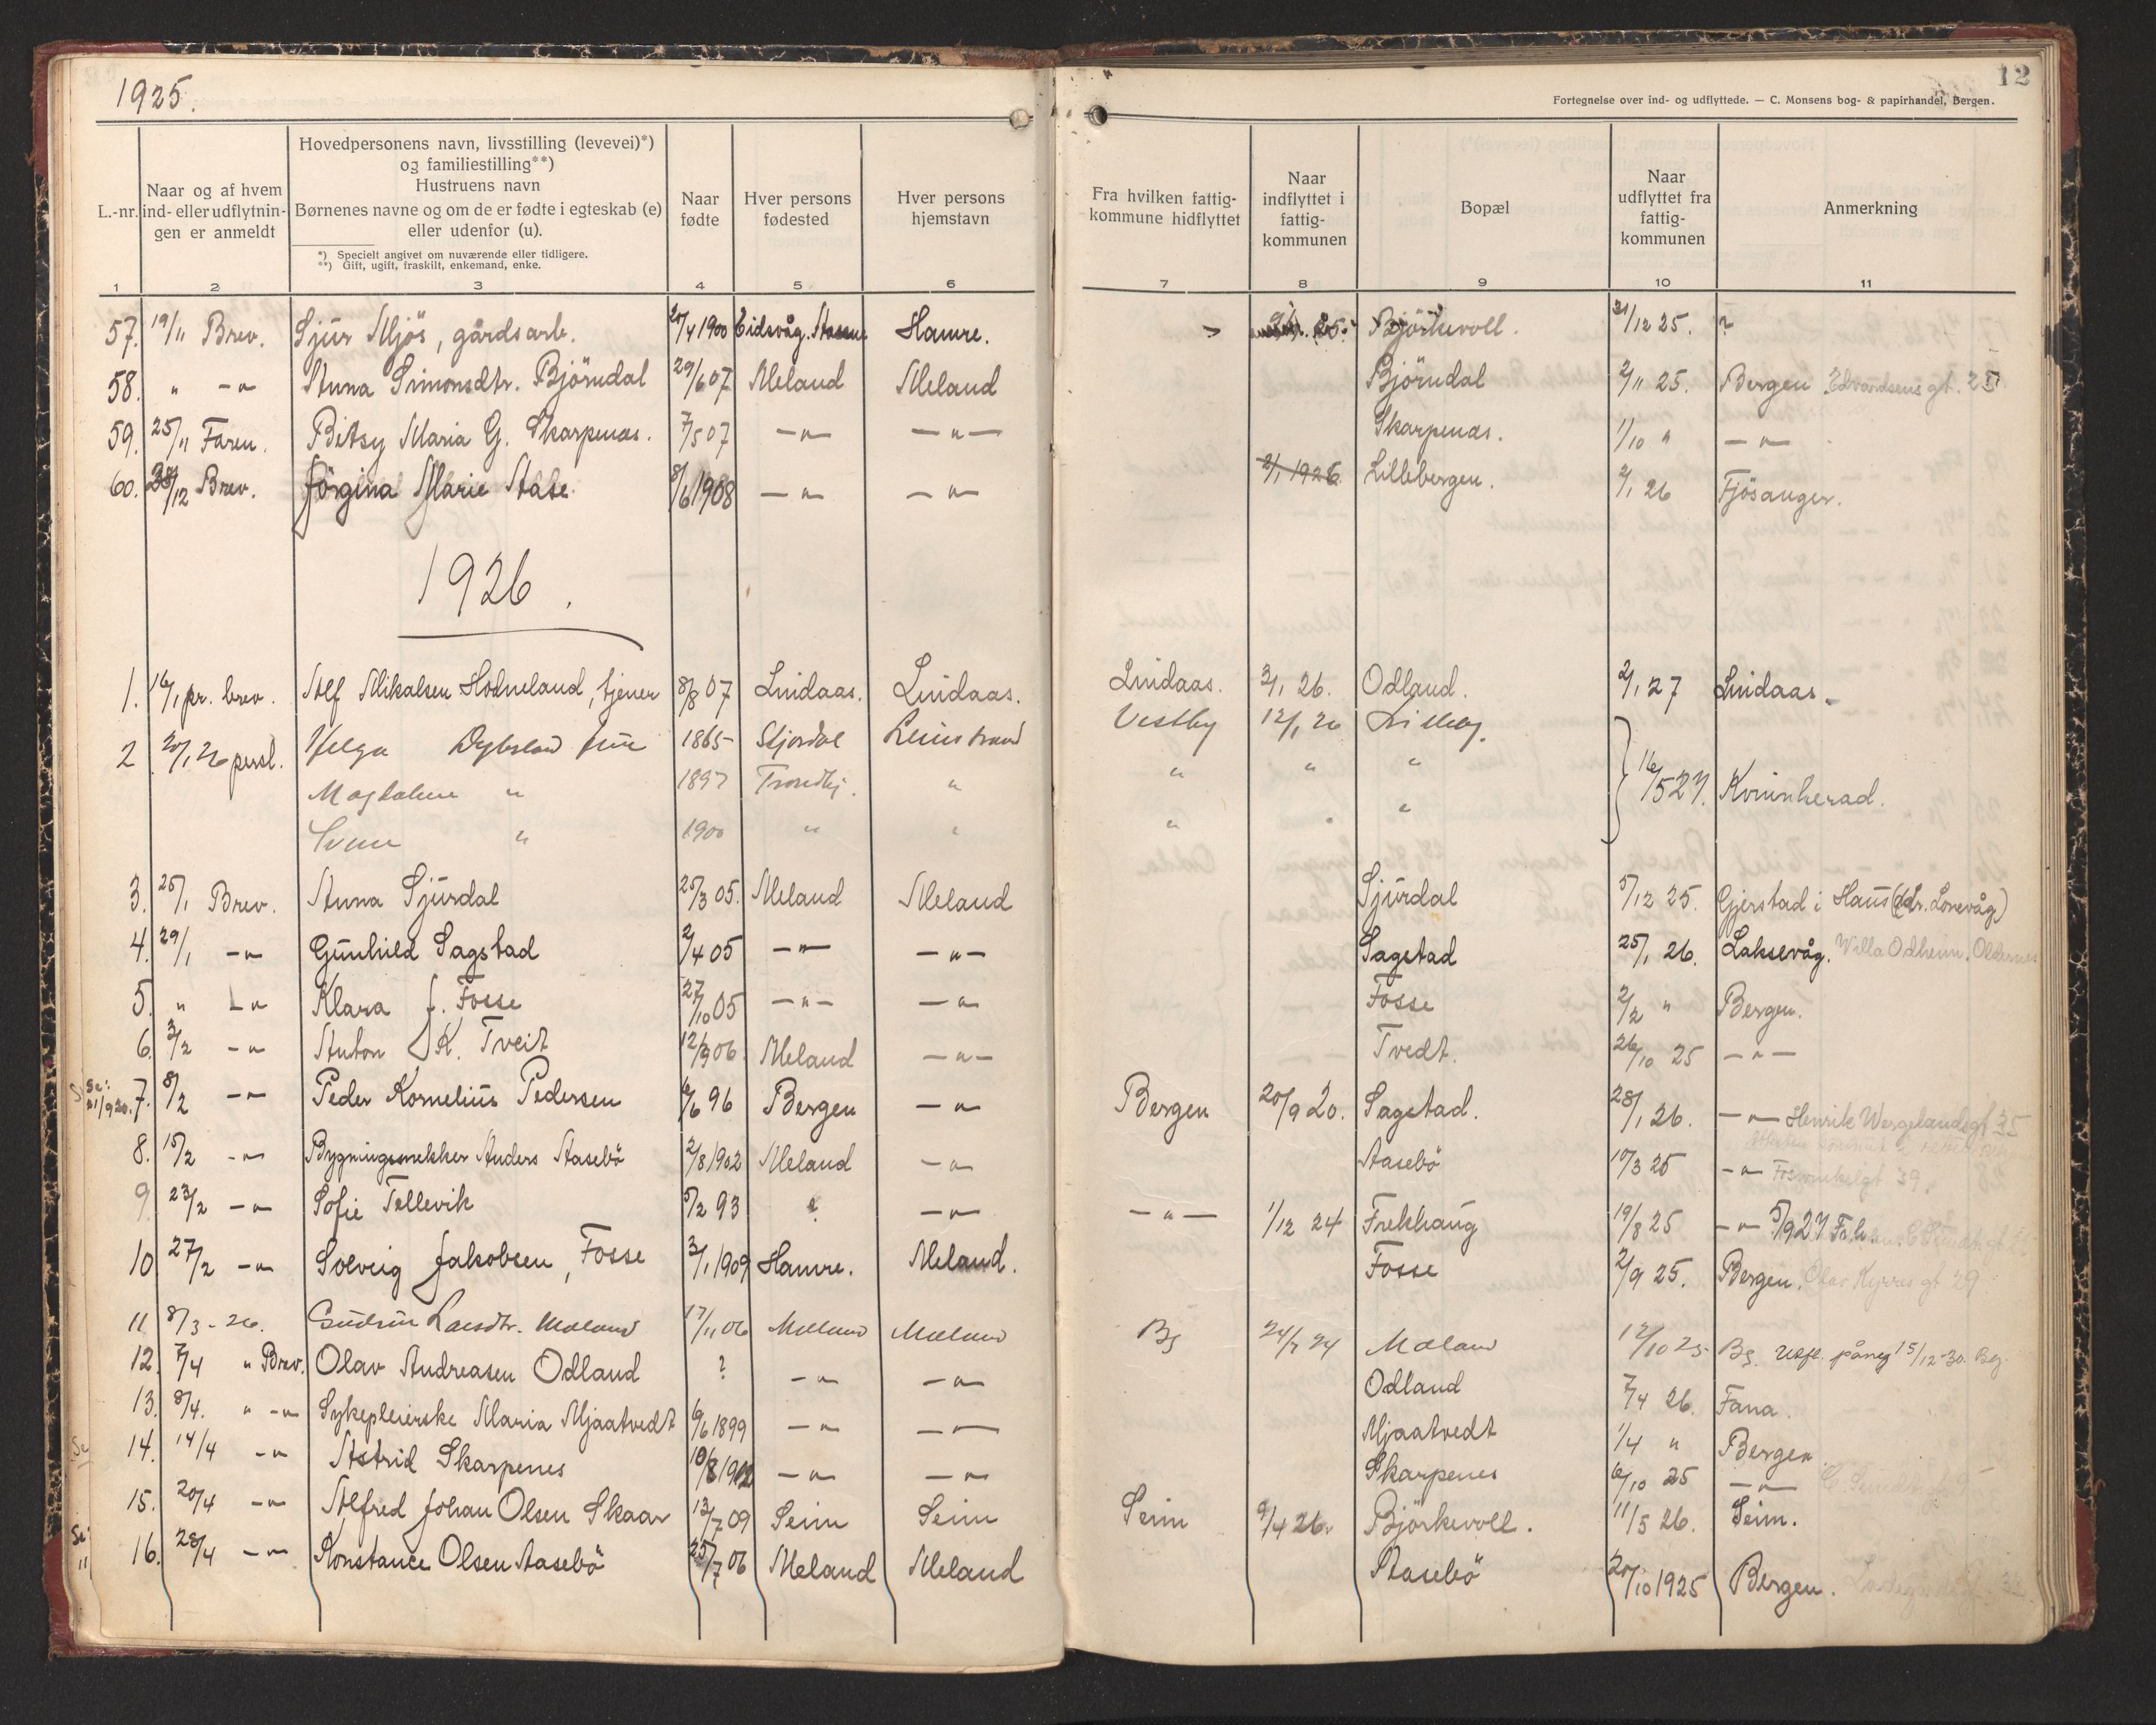 1925.
12
Fortegnelse over ind- og udflyttede. — C. Monsens bog- & papirhandel, Bergen.
L.-nr.
Naar og af hvem ind- eller udflytnin-gen er anmeldt
Hovedpersonens navn, livsstilling (levevei)*) og familiestilling**)
Hustruens navn
Børnenes navne og om de er fødte i egteskab (e) eller udenfor (u).
*) Specielt angivet om nuværende eller tidligere.
**) Gift, ugift, fraskilt, enkemand, enke.
Naar fødte
Hver persons fødested
Hver persons hjemstavn
Fra hvilken fattig-kommune hidflyttet
Naar indflyttet i fattig-kommunen
Bopæl
Naar udflyttet fra fattig-kommunen
Anmerkning
1 2 3 4 5 6 7 8 9 10 11
57. 19/11 Brev. Sjur Mjös, gårdsarb. 20/4 1900 Eidsvåg. Hamre. Björkevoll. 31/12 25. ?
58. " -"- Anna Simonsdtr. Björndal 29/6 07 Meland Meland Björndal 2/11 25. Bergen Edvardsens gt. 25
59. 25/11 Faren. Betsy Maria G. Skarpenæs. 7/5 07 -"- -"- Skarpenæs. 1/10 " -"-
60. 28/12 Brev. Jörgina Marie Aase 8/6 1908 -"- -"- 2/1 1926 Lillebergen. 2/1 26 Fjösanger.
1926.
1. 16/1 pr. brev. Alf Mikalsen Hodneland, tjener 8/8 07 Lindaas. Lindaas. Lindaas. 2/1 26. Odland. 2/1 27 Lindaas.
2 20/1 26 persl. Helga 1865 Stjordal Leinstrand Vestby 12/1 26
Magdalene " 1897 Trondhj. " " " " } 16/5 27. Kvinnherad.
" 1900 " " " " "
3. 25/1 Brev. Anna Sjurdal 25/3 05. Meland Meland Sjurdal 5/12 25. Gjerstad i Haus (adr. Lonevåg)
4. 29/1 -"- Gunhild Sagstad 2/4 05 -"- -"- Sagstad 25/1 26. Laksevåg. Villa Odheim, Oldernes
5. " -"- Klara J. Fosse 27/10 05 -"- -"- Fosse 2/2 " Bergen.
6. 3/2 -"- Anton K. Tveit 12/9 06. Meland -"- Tvedt. 26/10 25 -"-
Se: 21/9 20. 7. 8/2 -"- Peder Kornelius Pedersen 6/6 96 Bergen -"- Bergen 20/9 20. Sagstad. 28/1 26. -"- Henrik Wergelandsgt 35
8. 15/2 -"- Bygningsnekker Anders Aasebö 2/8 1902 Meland -"- Aasebö 17/3 25 -"- Fosswinkelgt 39.
9. 23/2 -"- Sofie Tellevik 5/2 93 ? -"- -"- 1/12 24 Frekhaug 19/8 25 -"- 5/9 27
10 27/2 -"- Solveig Jakobsen, Fosse 3/1 1909 Hamre. Meland. Fosse 2/9 25. Bergen. Olav Kyrres gt 29
11 8/3 - 26. Gudrun Larsdtr. Meland 17/11 06 Meland Meland Bg 24/7 24 Meland 12/10 25 Bg. påny 15/12-30. Bg.
12. 7/4 " Brev. Olav Andreasen Odland ? -"- -"- Odland 7/4 26. Fana.
13. 8/4. " -"- Sykepleierske Maria Mjaatvedt 6/6 1899 -"- -"- Mjaatvedt 1/4 " Bergen.
Se 14. 14/4 -"- Astrid Skarpenes 10/8 1902 -"- -"- Skarpenes 6/10 25 -"-
15. 20/4 -"- Alfred Johan Olsen Skaar 13/7 09 Seim Seim Seim 9/4 26. Björkevoll. 11/5 26. Seim.
Se: 11 16. 28/4 -"- Konstance Olsen Aasebö 25/7 06 Meland Meland Aasebö 20/10 1925 Bergen.